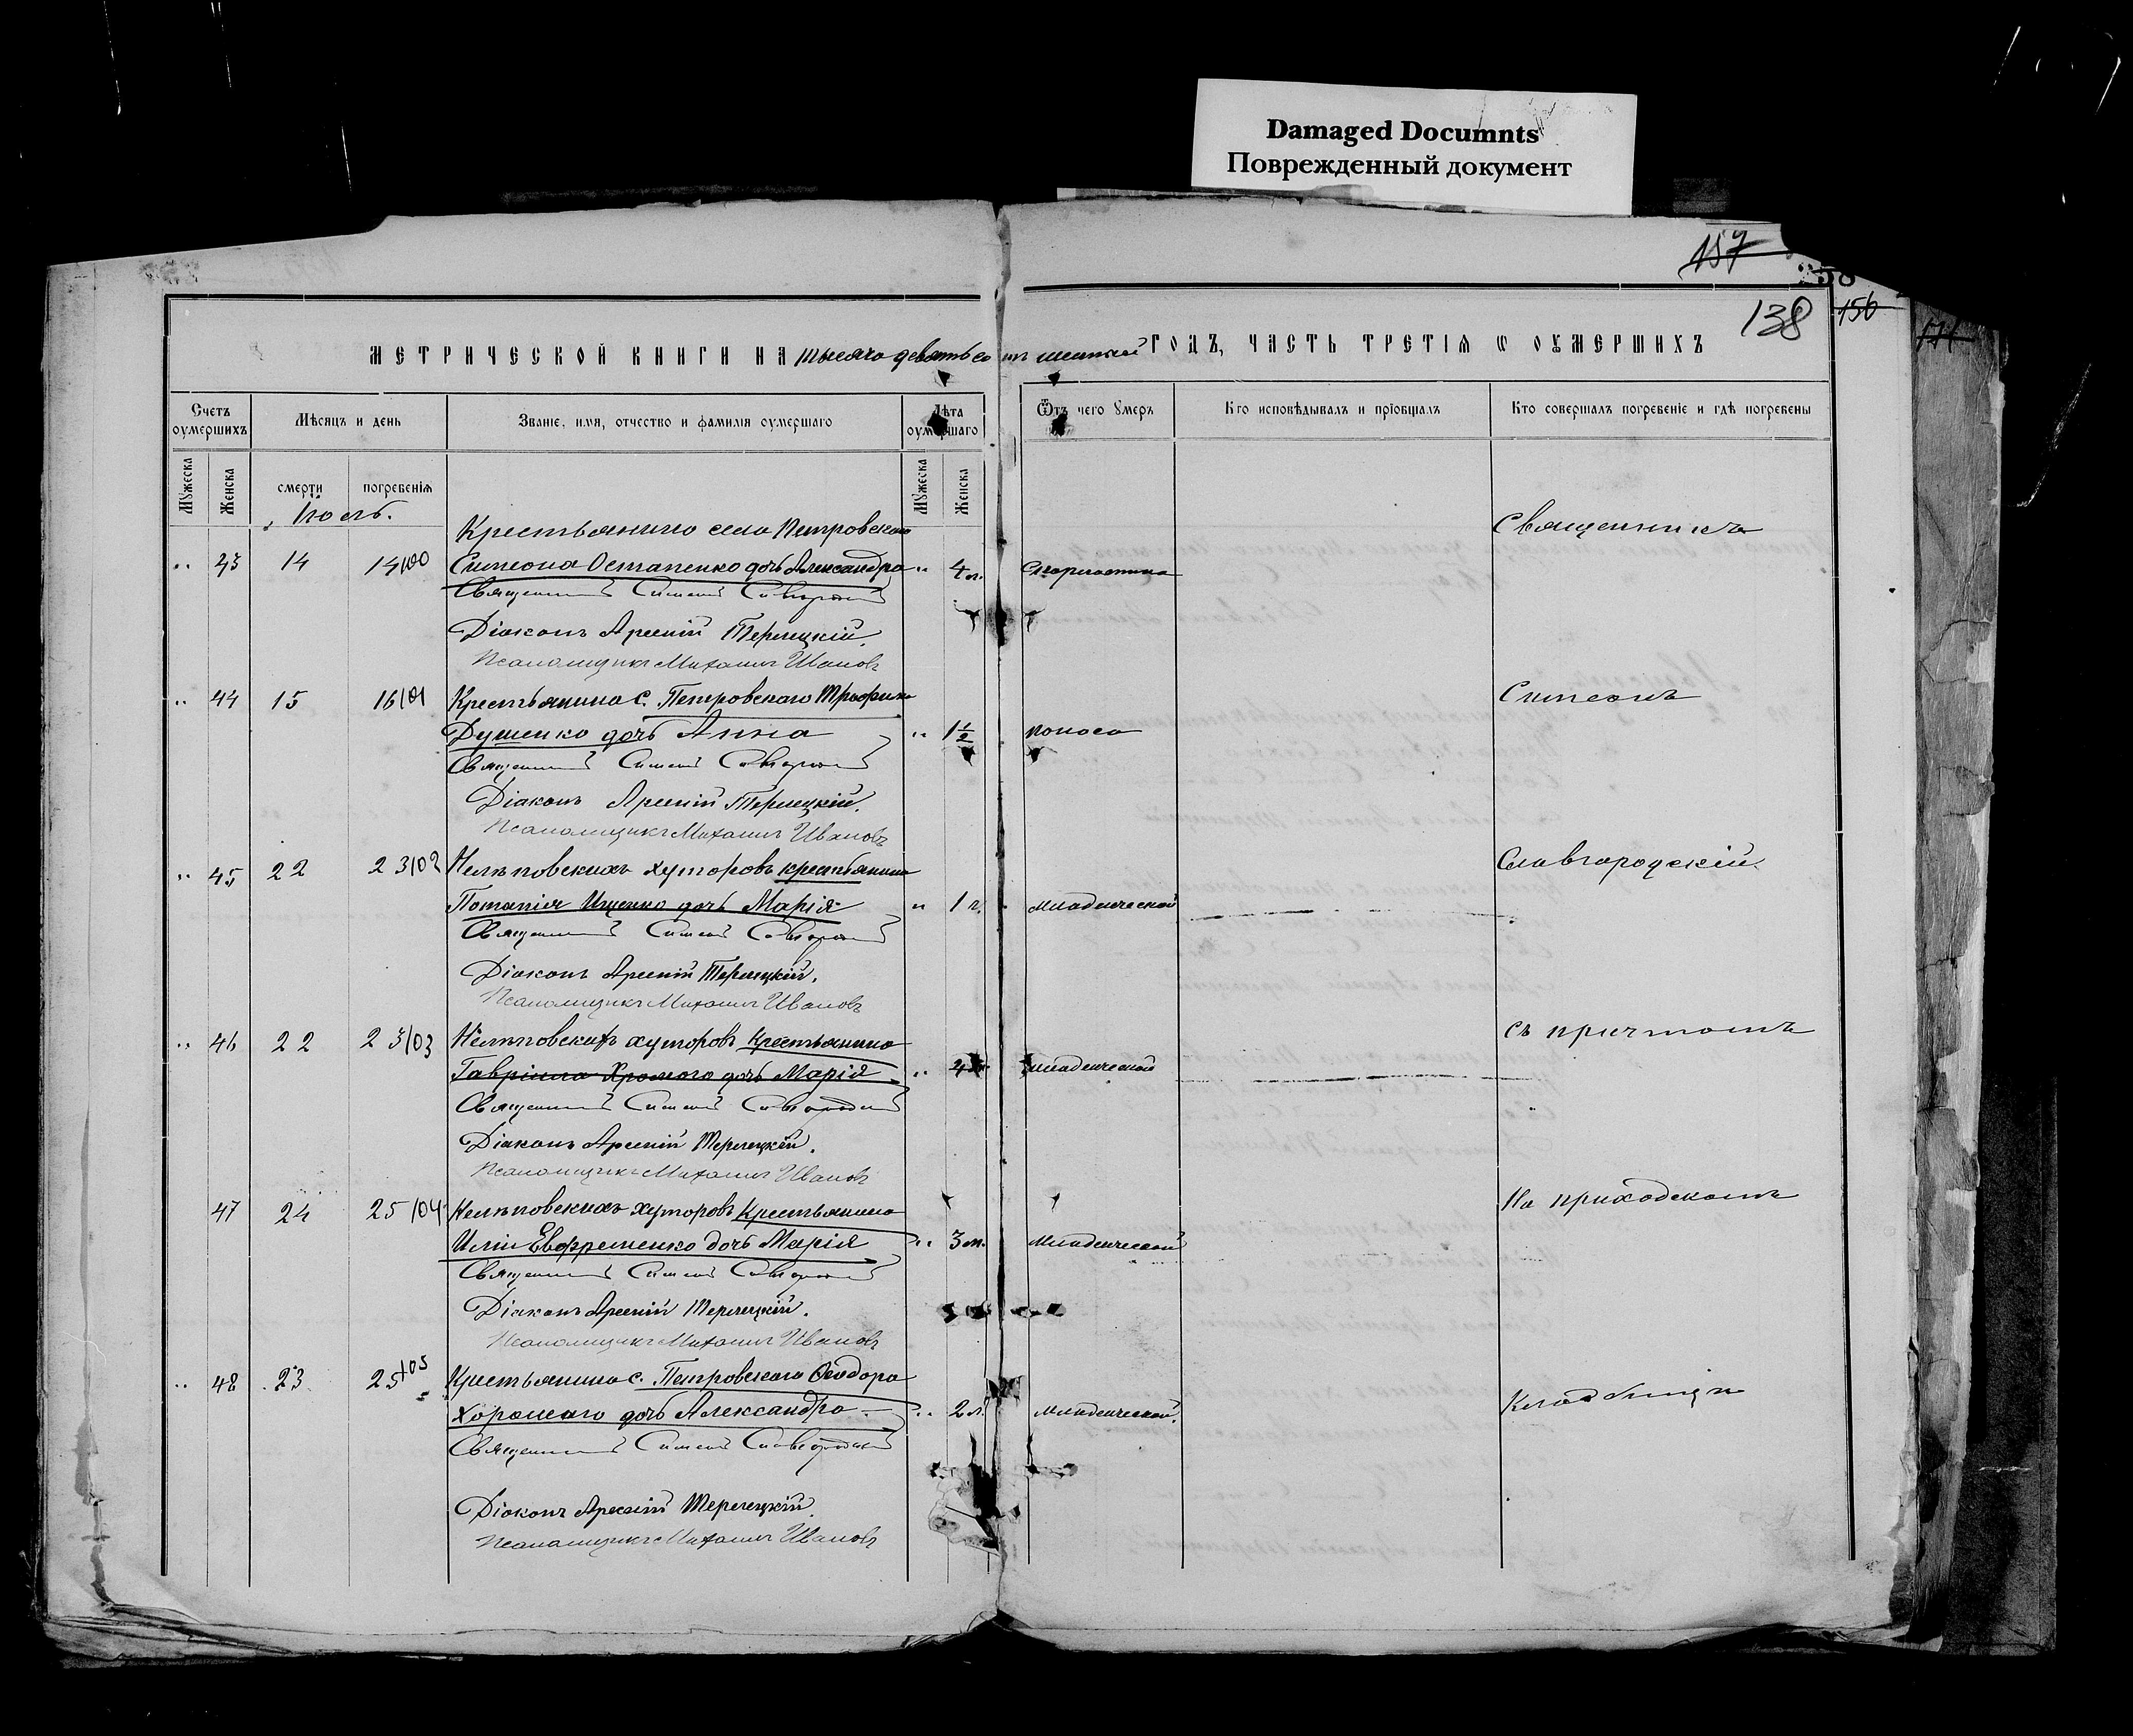 Damaged Documnts
Поврежденный документ
157
58
138
156
171
МЕТРИЧЕСКОЙ КНИГИ НА тысяча девятьсотъ шестый ГОДЪ, ЧАСТЬ ТРЕТІЯ Ѡ ОУМЕРШИХЪ
Счетъ оумершихъ
Мѣсяцъ и день
Званіе, имя, отчество и фамилія оумершаго
Лѣта оумершаго
Ѿтъ чего Умеръ
Кто исповѣдывалъ и пріобщалъ
Кто совершалъ погребеніе и гдѣ погребены
Мужеска
Женска
смерти
погребенія
Мужеска
Женска
Іюль.
Крестьянина села Петровскаго Священникъ
„ 43 14 14/100 Симеона Остапенко дочь Александра „ 4 л. Скарлатина
Священникъ Симеонъ Славгородскій
Діаконъ Арсеній Терлецкій.
Псаломщикъ Михаилъ Ивановъ
„ 44 15 16/101 Крестьянина с. Петровскаго Трофима Симеонъ
Душенко дочь Анна „ 1 1/2 поноса
Священникъ Симеонъ Славгородскій
Діаконъ Арсеній Терлецкій.
Псаломщикъ Михаилъ Ивановъ
„ 45 22 23/102 хуторовъ крестьянина Славгородскій
Потапія Ищенко дочь Марія „ 1 г. младенческой
Священникъ Симеонъ Славгородскій
Діаконъ Арсеній Терлецкій.
Псаломщикъ Михаилъ Ивановъ
„ 46 22 23/103 хуторовъ крестьянина съ причтомъ
Гавріила Хромого дочь Марія „ младенческой
Священникъ Симеонъ Славгородскій
Діаконъ Арсеній Терлецкій.
Псаломщикъ Михаилъ Ивановъ
47 24 25/104 хуторовъ крестьянина На приходскомъ
Иліи Евфременко дочь Марія „ 3 м. младенческой
Священникъ Симеонъ Славгородскій
Діаконъ Арсеній Терлецкій.
Псаломщикъ Михаилъ Ивановъ
„ 48 23 25/105 Крестьянина с. Петровскаго Ѳеодора Кладбищѣ
Хорошаго дочь Александра „ 2 л. младенческой.
Священникъ Симеонъ Славгородскій
Діаконъ Арсеній Терлецкій.
Псаломщикъ Михаилъ Ивановъ